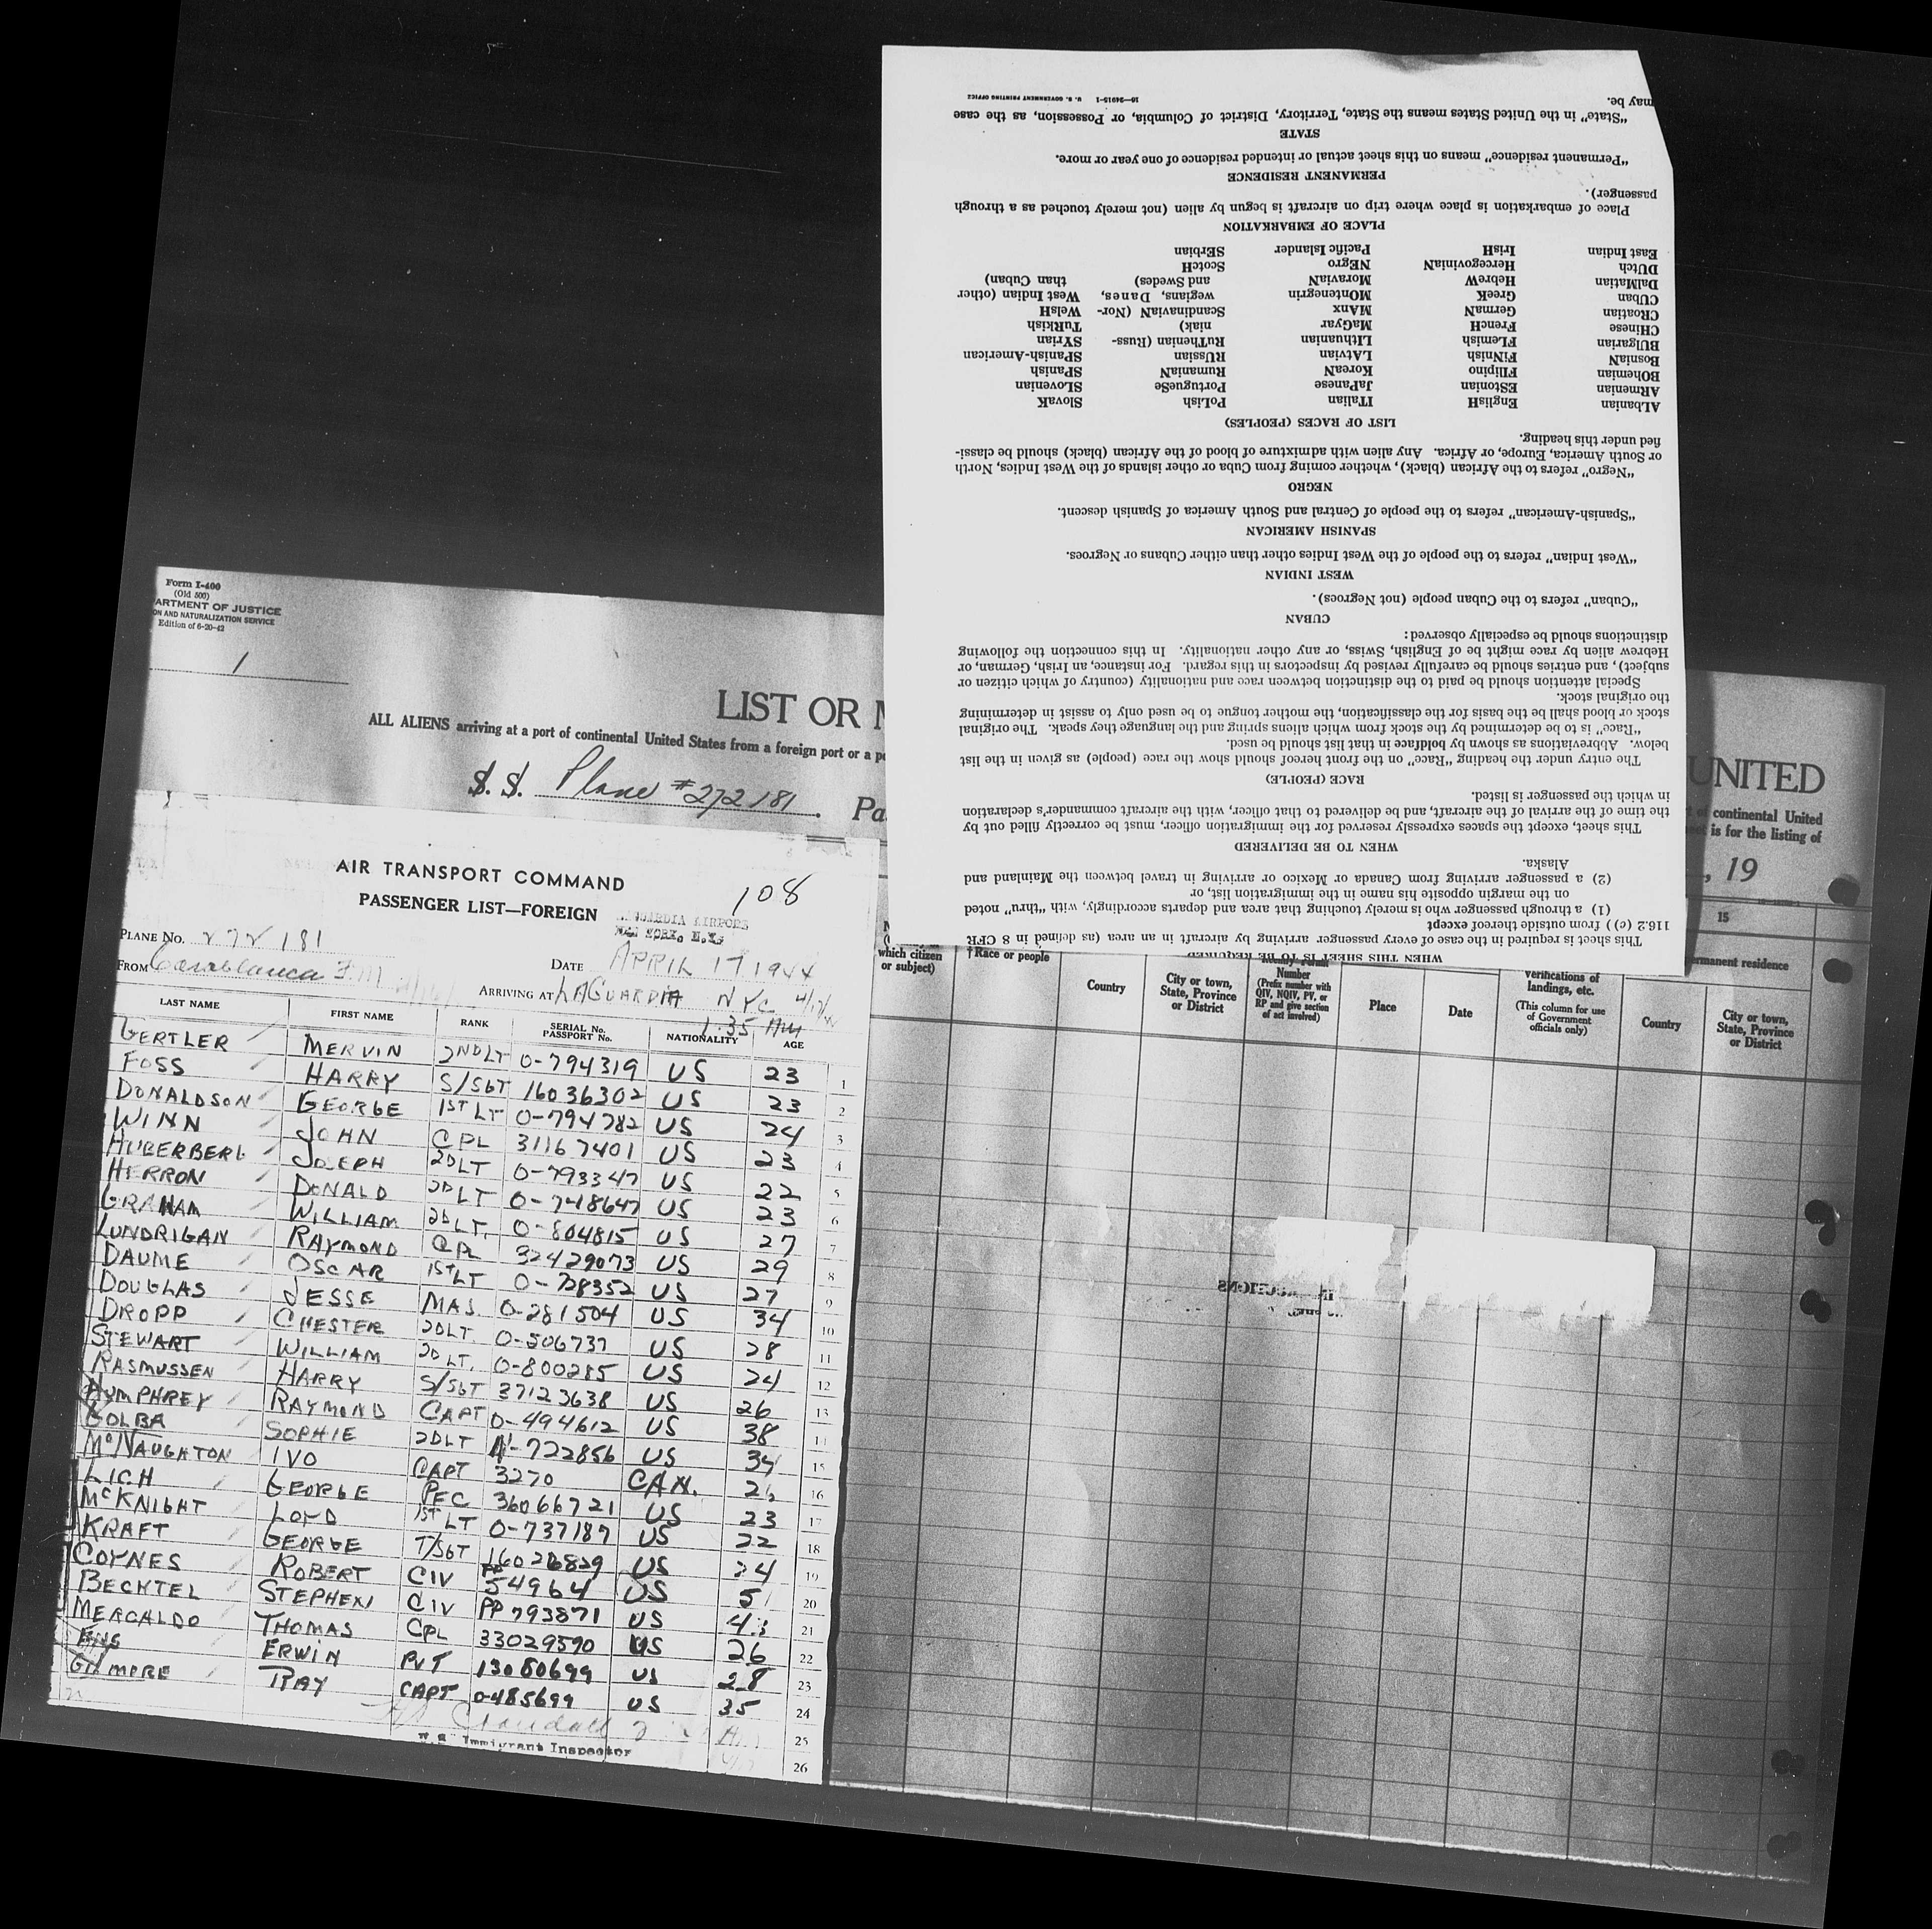 Form I-400
(Old 500)
ARTMENT OF JUSTICE
ON AND NATURALIZATION SERVICE
Edition of 6-20-42
1
LIST OR
ALL ALIENS arriving at a port of continental United States from a foreign port or a
S. S. Plane #272181. Pa
UNITED
of continental United
is for the listing of
, 19
15
AIR TRANSPORT COMMAND
108
PASSENGER LIST—FOREIGN
GUARDIA AIRPORT
NEW YORK, N.Y.
PLANE No. 272181
FROM Casablanca F.M.
DATE APRIL 17 1944
ARRIVING AT LAGUARDIA NYC 4/17/44
1:35 AM
LAST NAME FIRST NAME RANK SERIAL No. PASSPORT No. NATIONALITY AGE
GERTLER MERVIN 2ND LT O-794319 US 23 1
FOSS HARRY S/SGT 16036302 US 23 2
DONALDSON GEORGE 1ST LT O-794782 US 24 3
WINN JOHN CPL 31167401 US 23 4
HUBERBERG JOSEPH 2D LT O-793347 US 22 5
HERRON DONALD 2D LT O-748647 US 23 6
GRAHAM WILLIAM 2D LT. O-804815 US 27 7
LUNDRIGAN RAYMOND CPL 32429073 US 29 8
DAUME OSCAR 1ST LT O-728352 US 27 9
DOUGLAS JESSE MAJ. O-281504 US 34 10
DROPP CHESTER 2D LT. O-506737 US 28 11
STEWART WILLIAM 2D LT. O-800285 US 24 12
RASMUSSEN HARRY S/SGT 37123638 US 26 13
HUMPHREY RAYMOND CAPT O-494612 US 38 14
GOLBA SOPHIE 2D LT N-722856 US 34 15
McNAUGHTON IVO CAPT 3270 CAN. 26 16
LICH GEORGE PFC 36066721 US 23 17
McKNIGHT LOYD 1ST LT O-737187 US 22 18
KRAFT GEORGE T/SGT 16026829 US 24 19
COYNES ROBERT CIV PP 54964 US 51 20
BECHTEL STEPHEN CIV PP 793871 US 43 21
MERCALDO THOMAS CPL 33029590 US 26 22
ENG ERWIN PVT 13080699 US 28 23
GILMORE RAY CAPT O-485699 US 35 24
Crandall 25
U.S. Immigrant Inspector
26
which citizen
or subject)
†Race or people
Country
City or town,
State, Province
or District
Number
(Prefix number with
QIV, NQIV, PV, or
RP and give section
of act involved)
Place
Date
verifications of
landings, etc.
(This column for use
of Government
officials only)
rmanent residence
Country
City or town,
State, Province
or District
WHEN THIS SHEET IS TO BE REQUIRED
This sheet is required in the case of every passenger arriving by aircraft in an area (as defined in 8 CFR
116.2 (c)) from outside thereof except
(1) a through passenger who is merely touching that area and departs accordingly, with "thru" noted
on the margin opposite his name in the immigration list, or
(2) a passenger arriving from Canada or Mexico or arriving in travel between the Mainland and
Alaska.
WHEN TO BE DELIVERED
This sheet, except the spaces expressly reserved for the immigration officer, must be correctly filled out by
the time of the arrival of the aircraft, and be delivered to that officer, with the aircraft commander's declaration
in which the passenger is listed.
RACE (PEOPLE)
The entry under the heading "Race" on the front hereof should show the race (people) as given in the list
below. Abbreviations as shown by boldface in that list should be used.
"Race" is to be determined by the stock from which aliens spring and the language they speak. The original
stock or blood shall be the basis for the classification, the mother tongue to be used only to assist in determining
the original stock.
Special attention should be paid to the distinction between race and nationality (country of which citizen or
subject), and entries should be carefully revised by inspectors in this regard. For instance, an Irish, German, or
Hebrew alien by race might be of English, Swiss, or any other nationality. In this connection the following
distinctions should be especially observed:
CUBAN
"Cuban" refers to the Cuban people (not Negroes).
WEST INDIAN
"West Indian" refers to the people of the West Indies other than either Cubans or Negroes.
SPANISH AMERICAN
"Spanish-American" refers to the people of Central and South America of Spanish descent.
NEGRO
"Negro" refers to the African (black), whether coming from Cuba or other islands of the West Indies, North
or South America, Europe, or Africa. Any alien with admixture of blood of the African (black) should be classi-
fied under this heading.
LIST OF RACES (PEOPLES)
ALbanian EnglisH ITalian PoLish SlovaK
ARmenian EStonian JaPanese PortugueSe SLovenian
BOhemian FIlipino KoreaN RumaniaN SPanish
BosniaN FiNnish LAtvian RUssian SPanish-American
BUlgarian FLemish LIthuanian RuThenian (Russ- SYrian
CHinese FrencH MaGyar niak) TuRkish
CRoatian GermaN MAnx ScandinaviaN (Nor- WelsH
CUban GreeK MOntenegrin wegians, Danes, West Indian (other
DalMatian HebreW MoraviaN and Swedes) than Cuban)
DUtch HercegoviniaN NEgro ScotcH
East Indian IrisH Pacific Islander SErbian
PLACE OF EMBARKATION
Place of embarkation is place where trip on aircraft is begun by alien (not merely touched as a through
passenger).
PERMANENT RESIDENCE
"Permanent residence" means on this sheet actual or intended residence of one year or more.
STATE
"State" in the United States means the State, Territory, District of Columbia, or Possession, as the case
may be.
16—24915-1 U. S. GOVERNMENT PRINTING OFFICE